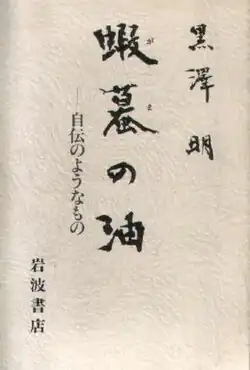 黒澤明
蝦蟇の油
がま
──自伝のようなもの
岩波書店